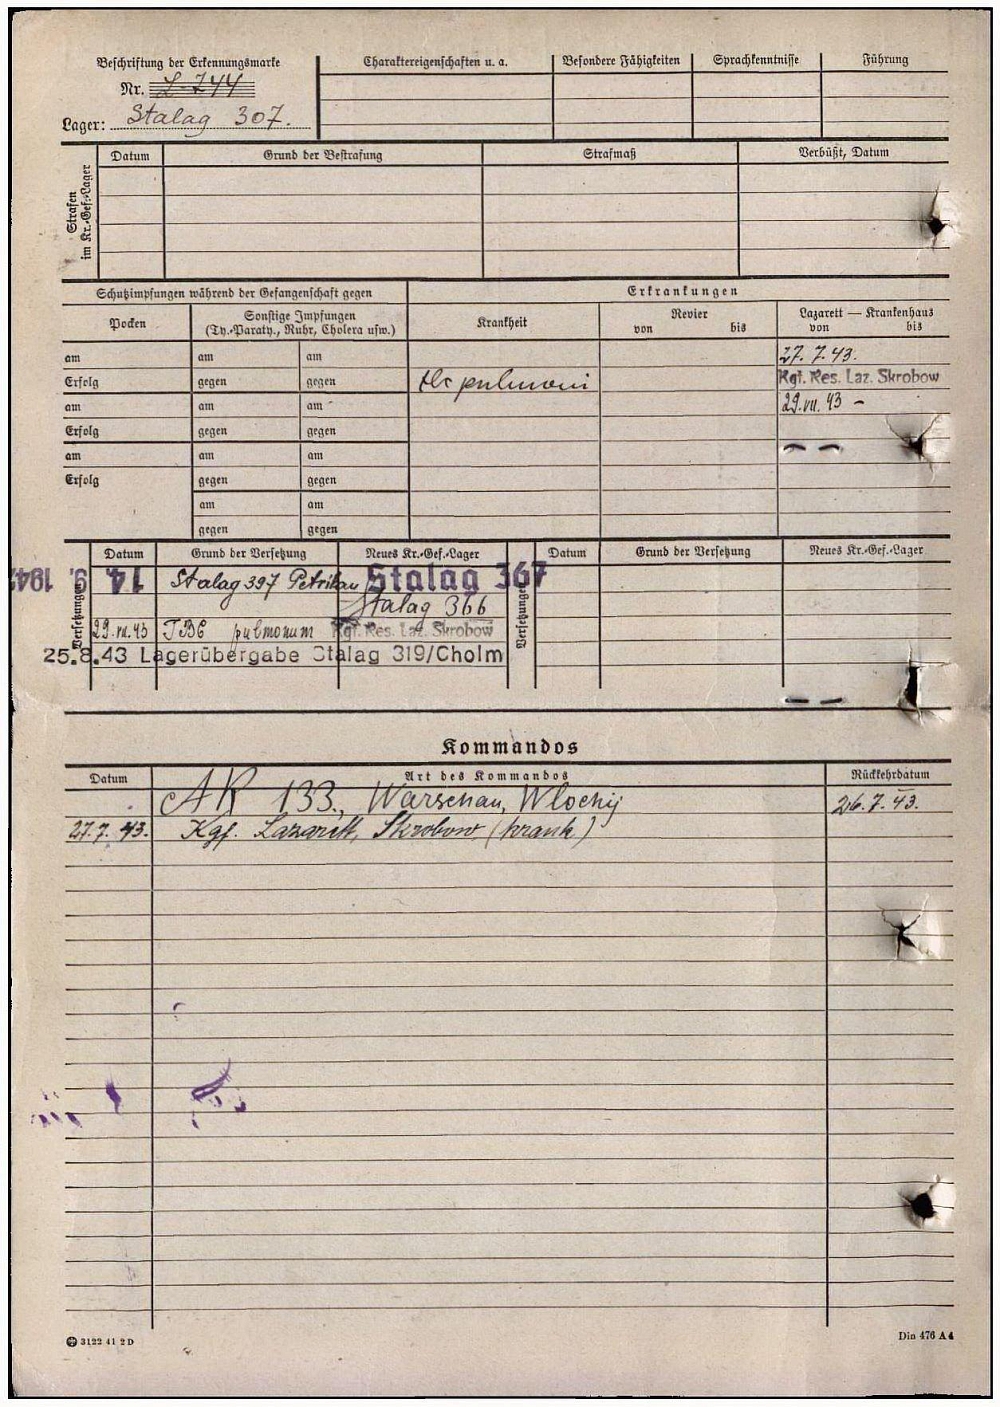 Beschriftung der Erkennungsmarke
Nr.
Lager: Stalag 307.
Charaktereigenschaften u. a. Besondere Fähigkeiten Sprachkenntnisse Führung
Strafen im Kr.-Gef.-Lager
Datum Grund der Bestrafung Strafmaß Verbüßt, Datum
Schutzimpfungen während der Gefangenschaft gegen Erkrankungen
Pocken Sonstige Impfungen Krankheit Revier Lazarett — Krankenhaus
(Ty.-Paraty., Ruhr, Cholera usw.) von bis von bis
am am am 27. 7. 43.
Erfolg gegen gegen tbc pulmoni Kgf. Res. Laz. Skrobow
am am am 29.VII. 43 –
Erfolg gegen gegen
am am am
Erfolg gegen gegen
am am
gegen gegen
Versetzungen
Datum Grund der Versetzung Neues Kr.-Gef.-Lager
14. 9. 194 Stalag 397 Petrikau Stalag 367
Stalag 366
29.VII.43 TBC pulmonum Kgf. Res. Laz. Skrobow
25.8.43 Lagerübergabe Stalag 319/Cholm
Versetzungen
Datum Grund der Versetzung Neues Kr.-Gef.-Lager
Kommandos
Datum Art des Kommandos Rückkehrdatum
AK 133., Warschau, Wlochy 26.7.43.
27.7.43. Kgf. Lazarett, Skrobow (krank)
3122 41 2 D
Din 476 A 4